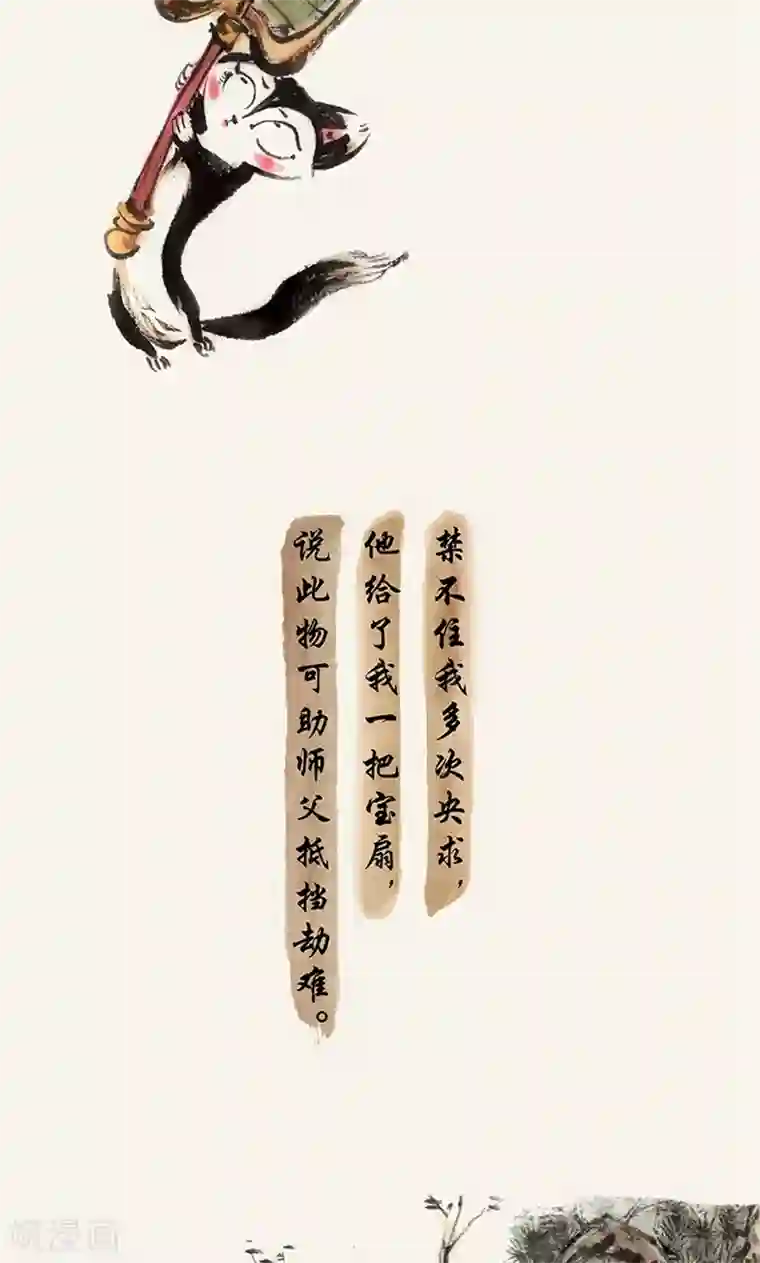 禁不住我多次央求，
他给了我一把宝扇，
说此物可助师父抵挡劫难。